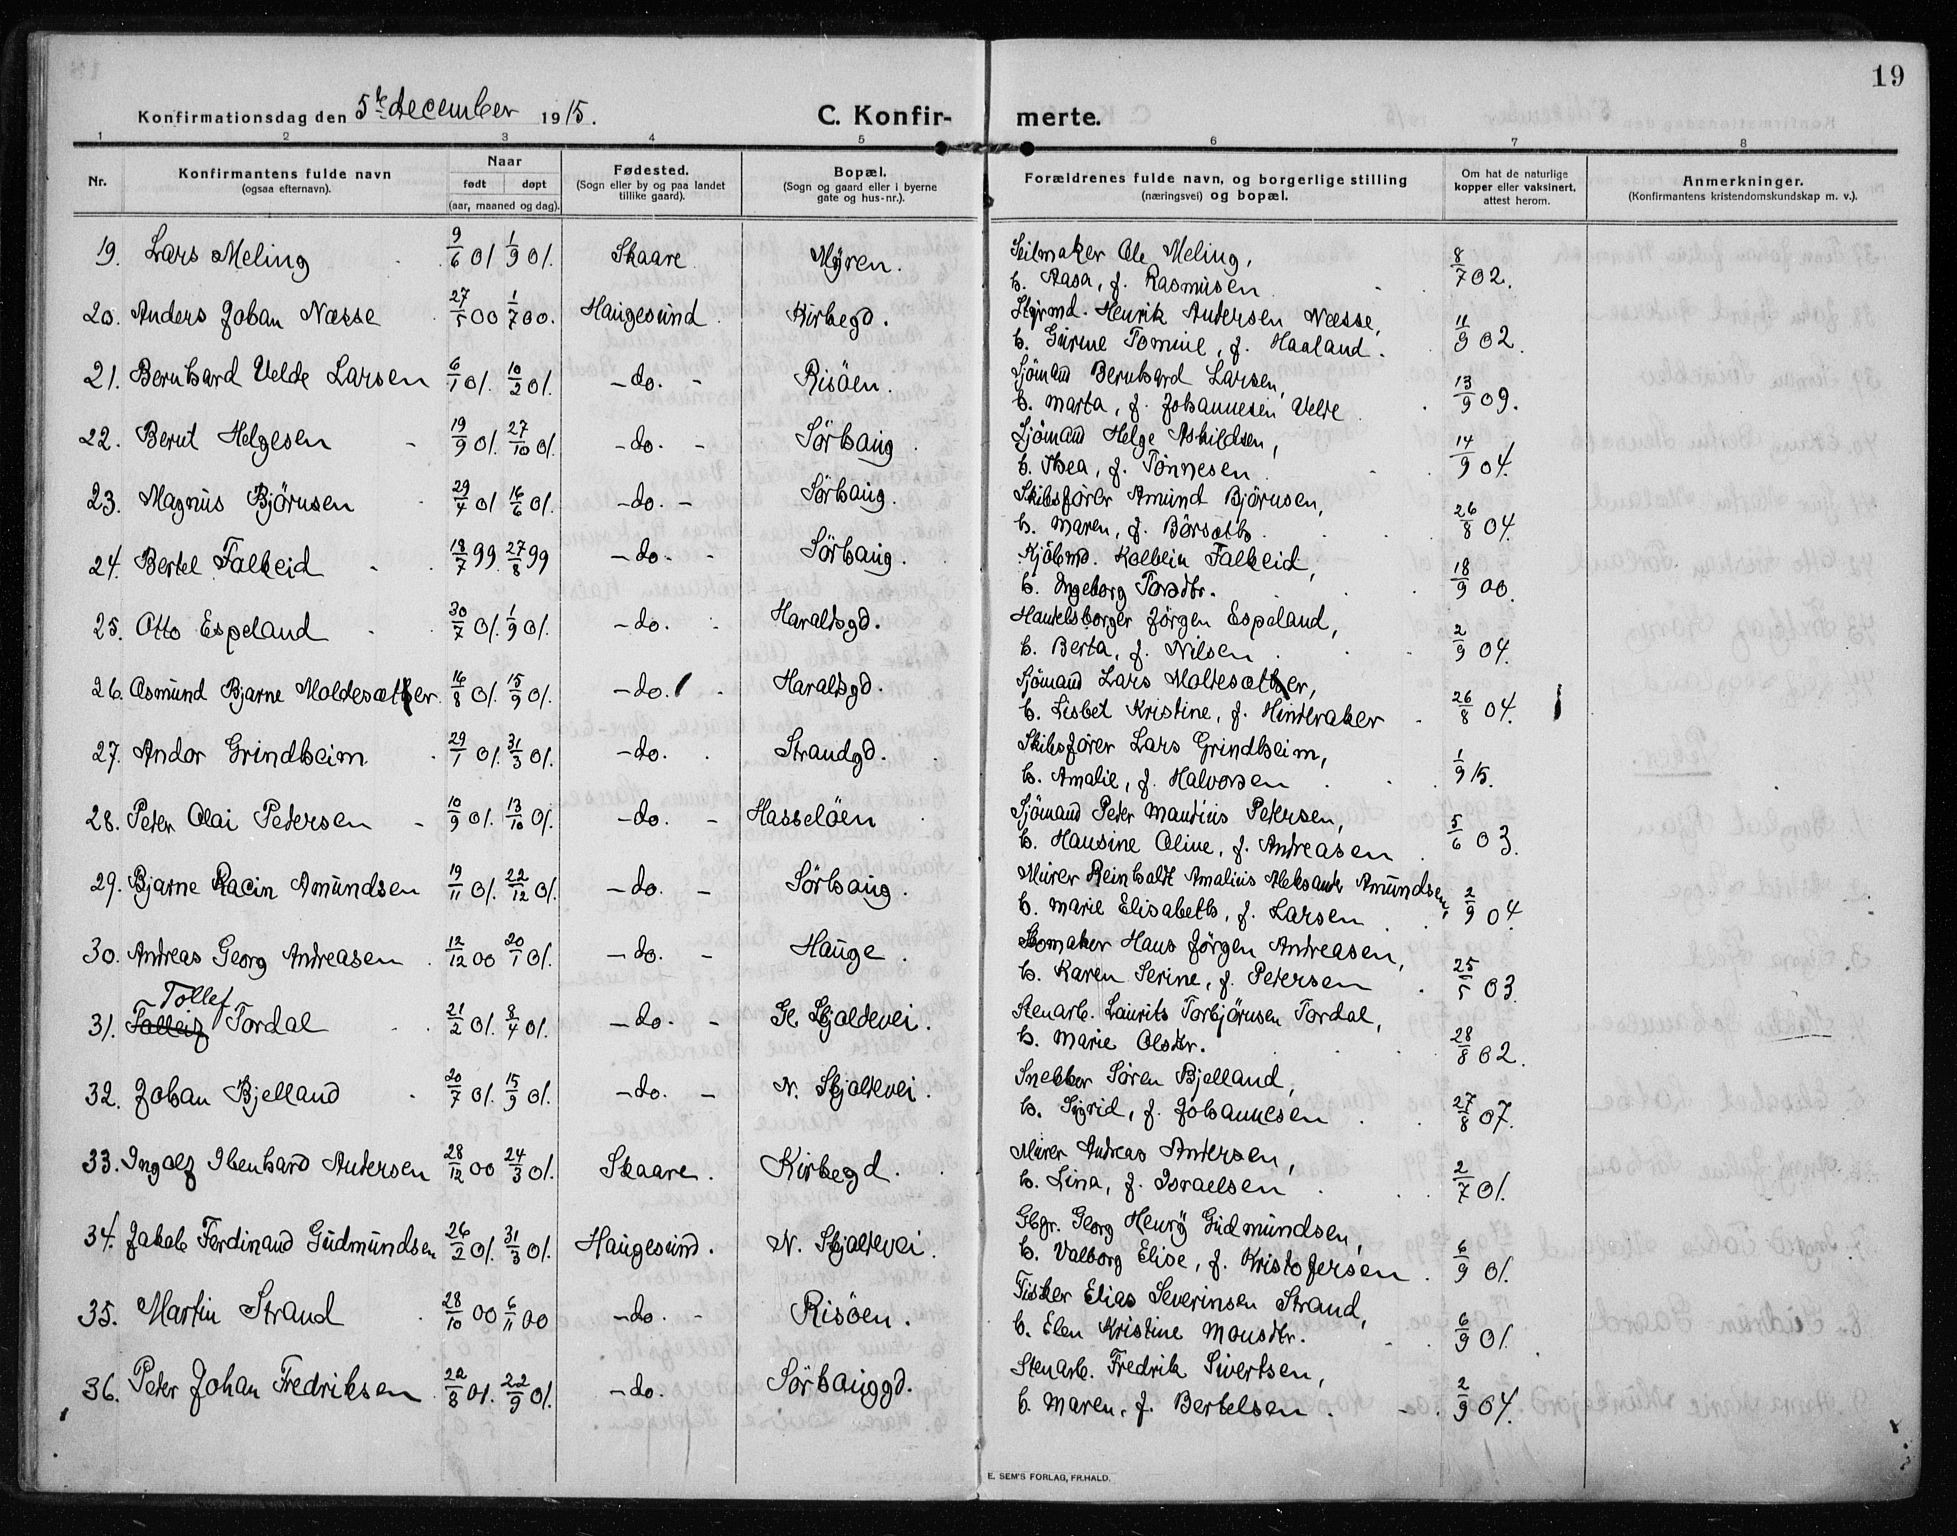 19
Konfirmationsdag den 5te december 1915. C. Konfir- merte.
1 2 3 4 5 6 7 8
Nr. Konfirmantens fulde navn (ogsaa efternavn). Naar født døpt (aar, maaned og dag). Fødested. (Sogn eller by og paa landet tillike gaard). Bopæl. (Sogn og gaard eller i byerne gate og hus-nr.). Forældrenes fulde navn, og borgerlige stilling (næringsvei) og bopæl. Om hat de naturlige kopper eller vaksinert, attest herom. Anmerkninger. (Konfirmantens kristendomskundskap m. v.).
19. Lars Meling 9/6 01 1/9 01. Skaare. Myren. Seilmaker Ole Meling,
h. Aasa, f. Rasmusen 8/7 02.
20. Anders Johan Næsse 27/5 00 1/7 00. Haugesund Kirkegd. Styrmd. Henrik Andersen Næsse,
h. Gurine Tomine, f. Haaland. 11/9 02.
21. Bernhard Velde Larsen 6/1 01. 10/2 01. -do.- Risöen. Sjömand Bernhard Larsen,
h. Marta, f. Johannesen Velde 13/9 09.
22. Berut Helgesen 19/9 01. 27/10 01. -do.- Sörhaug. Sjömand Helge Askildsen,
h. Thea, f. Tønnesen 14/9 04.
23. Magnus Björnsen 29/4 01 16/6 01. -do.- Sörhaug. Skibsfører Amund Björnsen,
h. Maren, f. Börsæth 26/8 04.
24. Bertel Falkeid 18/7 99. 27/8 99 -do.- Sörhaug. Kjöbmd. Kolbein Falkeid,
h. Ingeborg Torsdtr. 18/9 00.
25. Otto Espeland 30/7 01. 1/9 01. -do. Haraldsgd. Handelsborger Jørgen Espeland,
h. Berta, f. Nilsen 2/9 04.
26. Asmund Bjarne Moldesæther. 16/8 01. 15/9 01. -do. Haraldsgd. Sjömand Lars Moldesæther,
h. Lisbet Kristine, f. Hinderaker 26/8 04.
27. Andor Grindheim 29/1 01. 31/3 01. -do. Strandgd. Skibsfører Lars Grindheim,
h. Amalie, f. Halvorsen 1/9 15.
28. Peter Olai Petersen 10/9 01. 13/10 01. -do. Hasselöen Sjömand Peter Mauritius Petersen,
h. Hansine Oline, f. Andreasen 5/6 03.
29. Bjarne Racin Amundsen 19/11 01. 22/12 01. -do.- Sörhaug. Murer Reinholdt Amalius Aleksander Amundsen,
h. Marie Elisabeth, f. Larsen 2/9 04.
30. Andreas Georg Andreasen 12/12 00 20/1 01. -do.- Hauge Skomaker Hans Jørgen Andreasen,
h. Karen Serine, f. Petersen 25/5 03.
Tollef
31. Tordal 21/2 01. 8/4 01. -do.- Gl. Skjoldevei. Stenarb. Laurits Torbjörnsen Tordal,
h. Marie Olsdtr. 28/8 02.
32. Johan Bjelland 20/7 01. 15/9 01. -do.- N. Skjoldevei. Snekker Søren Bjelland,
h. Sigrid, f. Johannesen 27/8 07.
33. Ingolf Ibenhard Andersen 28/12 00 24/3 01. Skaare. Kirkegd. Murer Andreas Andersen,
h. Lina, f. Israelsen 2/7 01.
34. Jakob Ferdinand Gudmundsen 26/2 01. 31/3 01. Haugesund. N. Skjoldevei. Gbgr. Georg Henry Gudmundsen,
h. Valborg Elise, f. Kristofersen 6/9 01.
35. Martin Strand 28/10 00 6/11 00 -do. Risöen. Fisker Elias Severinsen Strand,
h. Elen Kristine Monsdtr. 6/9 01.
36. Peter Johan Fredriksen 22/8 01. 22/9 01. -do. Sörhauggd. Stenarb. Fredrik Sivertsen,
h. Maren, f. Bertelsen 2/9 04.
E. SEM'S FORLAG, FR.HALD.